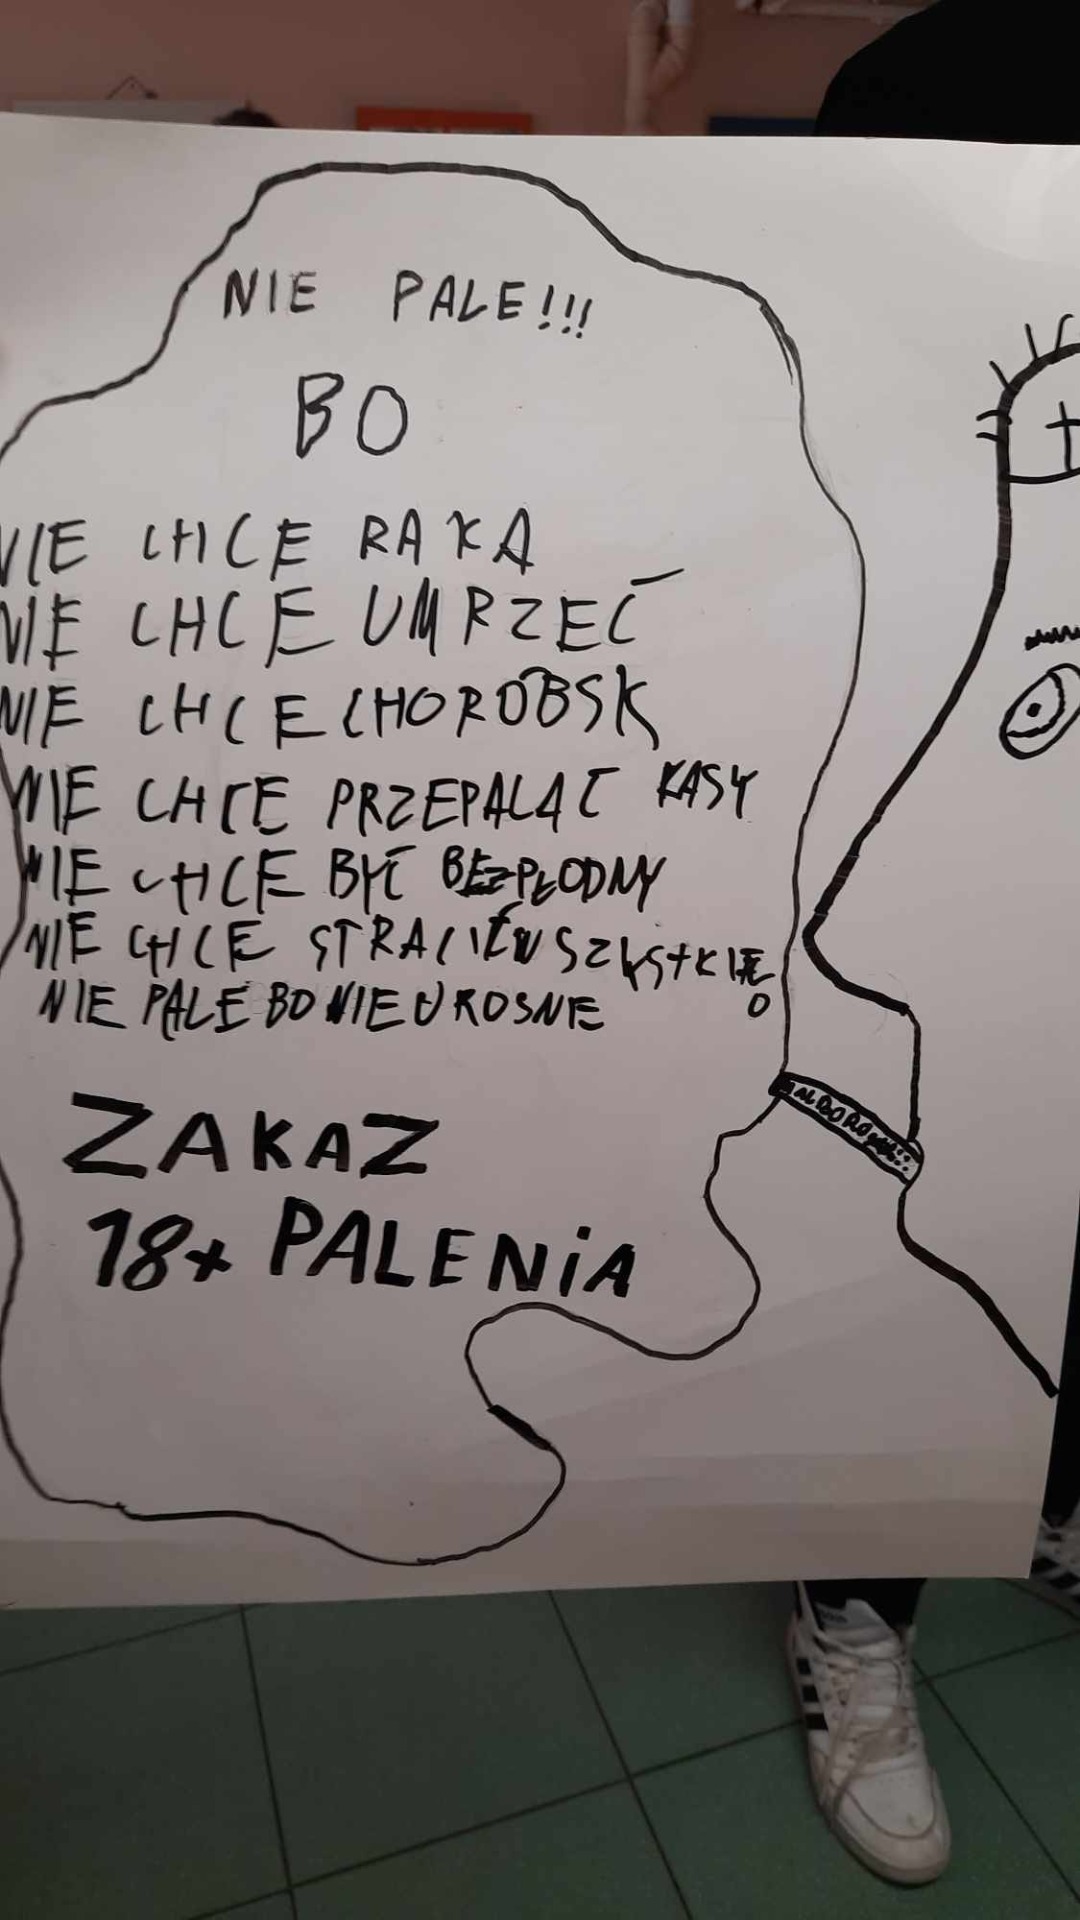 NIE PALE!!!
BO
NIE CHCE RAKA
NIE CHCE UMRZEĆ
NIE CHCE CHORÓBSK
NIE CHCE PRZEPALAĆ KASY
NIE CHCE BYĆ BEZPŁODNY
NIE CHCE STRACIĆ WSZYSTKIE
GO
NIE PALE BO NIE UROSNE
ZAKAZ
18+ PALENIA